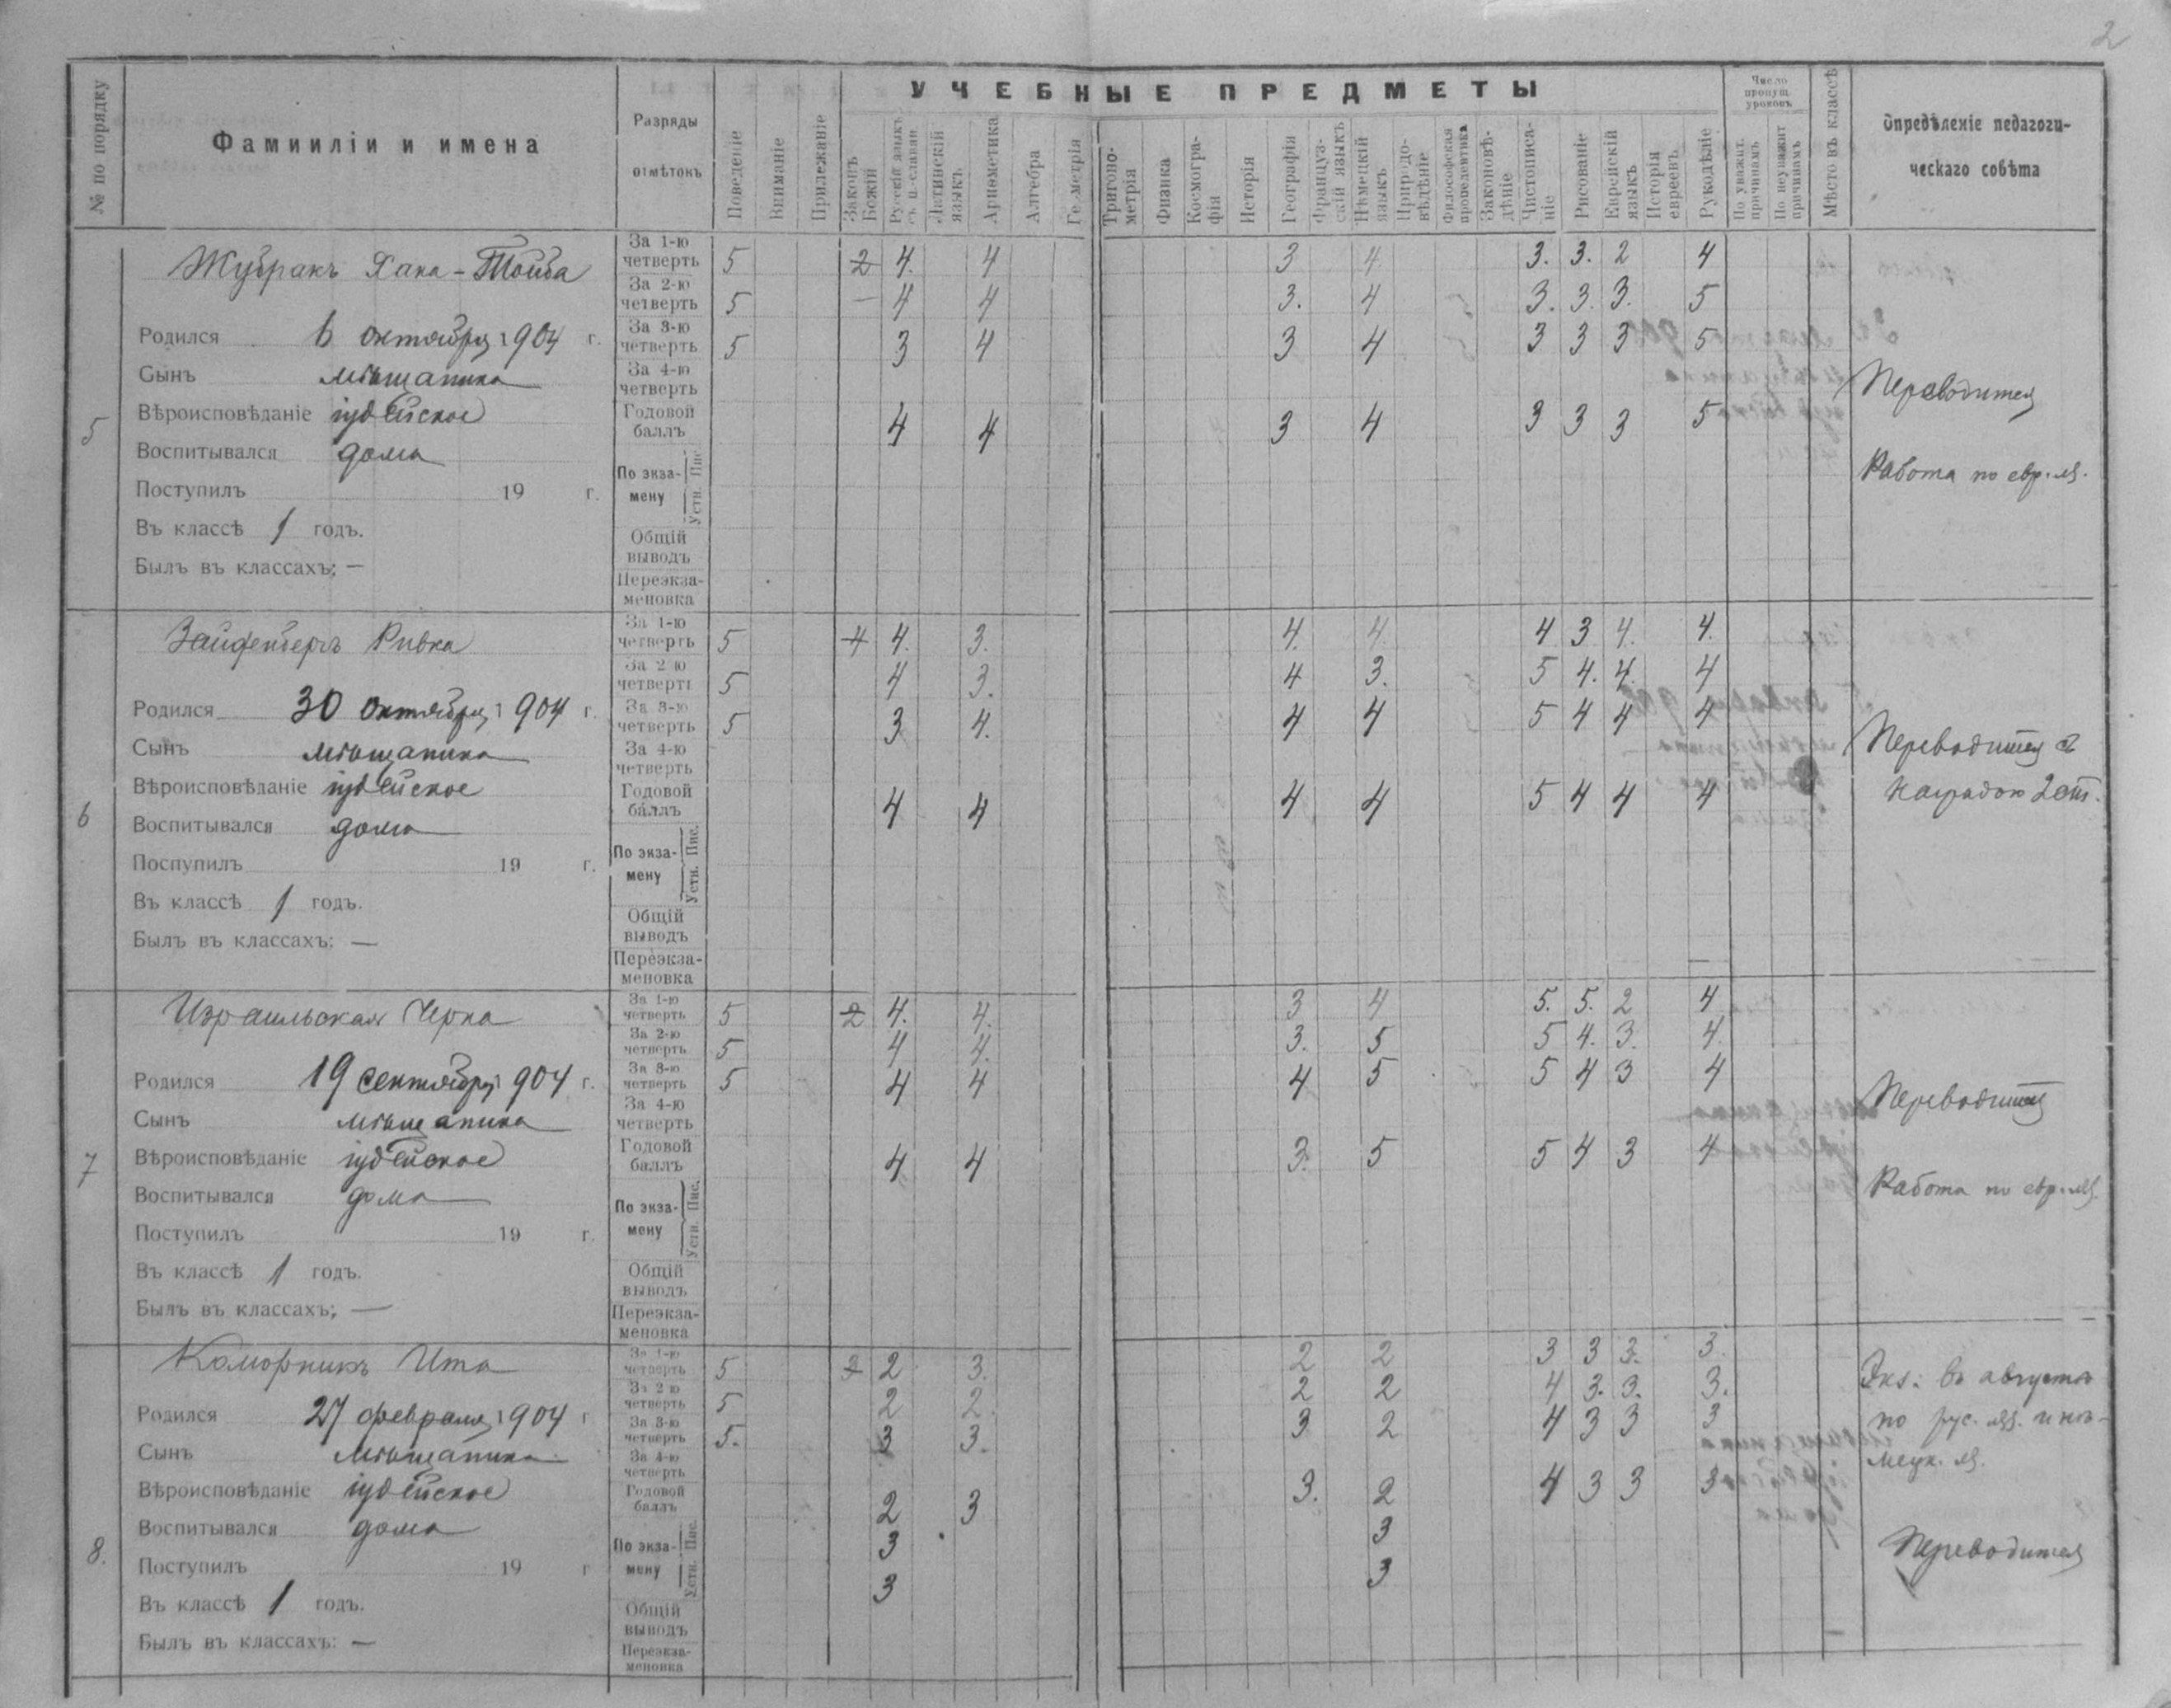 2
№ по порядку
Фамииліи и имена
Разряды
отмѣтокъ
Поведеніе
Вниманіе
Прилежаніе
УЧЕБНЫЕ ПРЕДМЕТЫ
Законъ Божій
Русскій языкъ съ ц-славян
Латинскій языкъ
Ариѳметика
Алгебра
Геометрія
Тригоно-метрія
Физика
Космогра-фія
Исторія
Географія
Француз-скій языкъ
Нѣмецкій языкъ
Природо-вѣдѣніе
Философская пропедевтика
Законовѣ-дѣніе
Чистописа-ніе
Рисованіе
Еврейскій языкъ
Исторія евреевъ
Рукодѣліе
Число пропущ. уроковъ
По уважит. причинамъ
По неуважит причинамъ
Мѣсто въ классѣ
Опредѣленіе педагоги-
ческаго совѣта
5
Жубракъ Хана-Тойба
Родился 6 октября 1904 г.
Сынъ мѣщанина
Вѣроисповѣданіе іудейское
Воспитывался дома
Поступилъ 19 г.
Въ классѣ 1 годъ.
Былъ въ классахъ; —
За 1-ю четверть 5 2 4. 4 3 4. 3. 3. 2 4
За 2-ю четверть 5 — 4 4 3. 4 3. 3. 3. 5
За 3-ю четверть 5 3 4 3 4 3 3 3 5
За 4-ю четверть
Годовой баллъ 4 4 3 4 3 3 3 5
По экза-мену Пис. Устн.
Общій выводъ
Переэкза-меновка
Переводится
Работа по евр. яз.
6
Зайфенберъ Ривка
Родился 30 октября 1904 г.
Сынъ мѣщанина
Вѣроисповѣданіе іудейское
Воспитывался дома
Поступилъ 19 г.
Въ классѣ 1 годъ.
Былъ въ классахъ: —
За 1-ю четверть 5 4 4. 3. 4. 4. 4 3 4. 4.
За 2-ю четверть 5 4 3. 4 3. 5 4. 4. 4
За 3-ю четверть 5 3 4. 4 4 5 4 4 4
За 4-ю четверть
Годовой баллъ 4 4 4 4 5 4 4 4
По экза-мену Пис. Устн.
Общій выводъ
Переэкза-меновка
Переводится съ
наградою 2 ст.
7
Израильская Черна
Родился 19 сентября 1904 г.
Сынъ мѣщанина
Вѣроисповѣданіе іудейское
Воспитывался дома
Поступилъ 19 г.
Въ классѣ 1 годъ.
Былъ въ классахъ; —
За 1-ю четверть 5 2 4. 4. 3 4 5. 5. 2 4
За 2-ю четверть 5 4 4. 3. 5 5 4. 3. 4.
За 3-ю четверть 5 4 4 4 5 5 4 3 4
За 4-ю четверть
Годовой баллъ 4 4 3. 5 5 4 3 4
По экза-мену Пис. Устн.
Общій выводъ
Переэкза-меновка
Переводится
Работа по евр. яз.
8.
Коморникъ Ита
Родился 27 февраля 1904 г
Сынъ мѣщанина
Вѣроисповѣданіе іудейское
Воспитывался дома
Поступилъ 19 г
Въ классѣ 1 годъ.
Былъ въ классахъ: —
За 1-ю четверть 5 2 2 3. 2 2 3 3 3. 3.
За 2-ю четверть 5 2 2. 2 2 4 3. 3. 3.
За 3-ю четверть 5. 3 3. 3 2 4 3 3 3
За 4-ю четверть
Годовой баллъ 2 3 3. 2 4 3 3 3
По экза-мену Пис. 3 3
Устн. 3 3
Общій выводъ
Переэкза-меновка
Экз. въ августѣ
по рус. яз. и нѣ-
мецк. яз.
Переводится